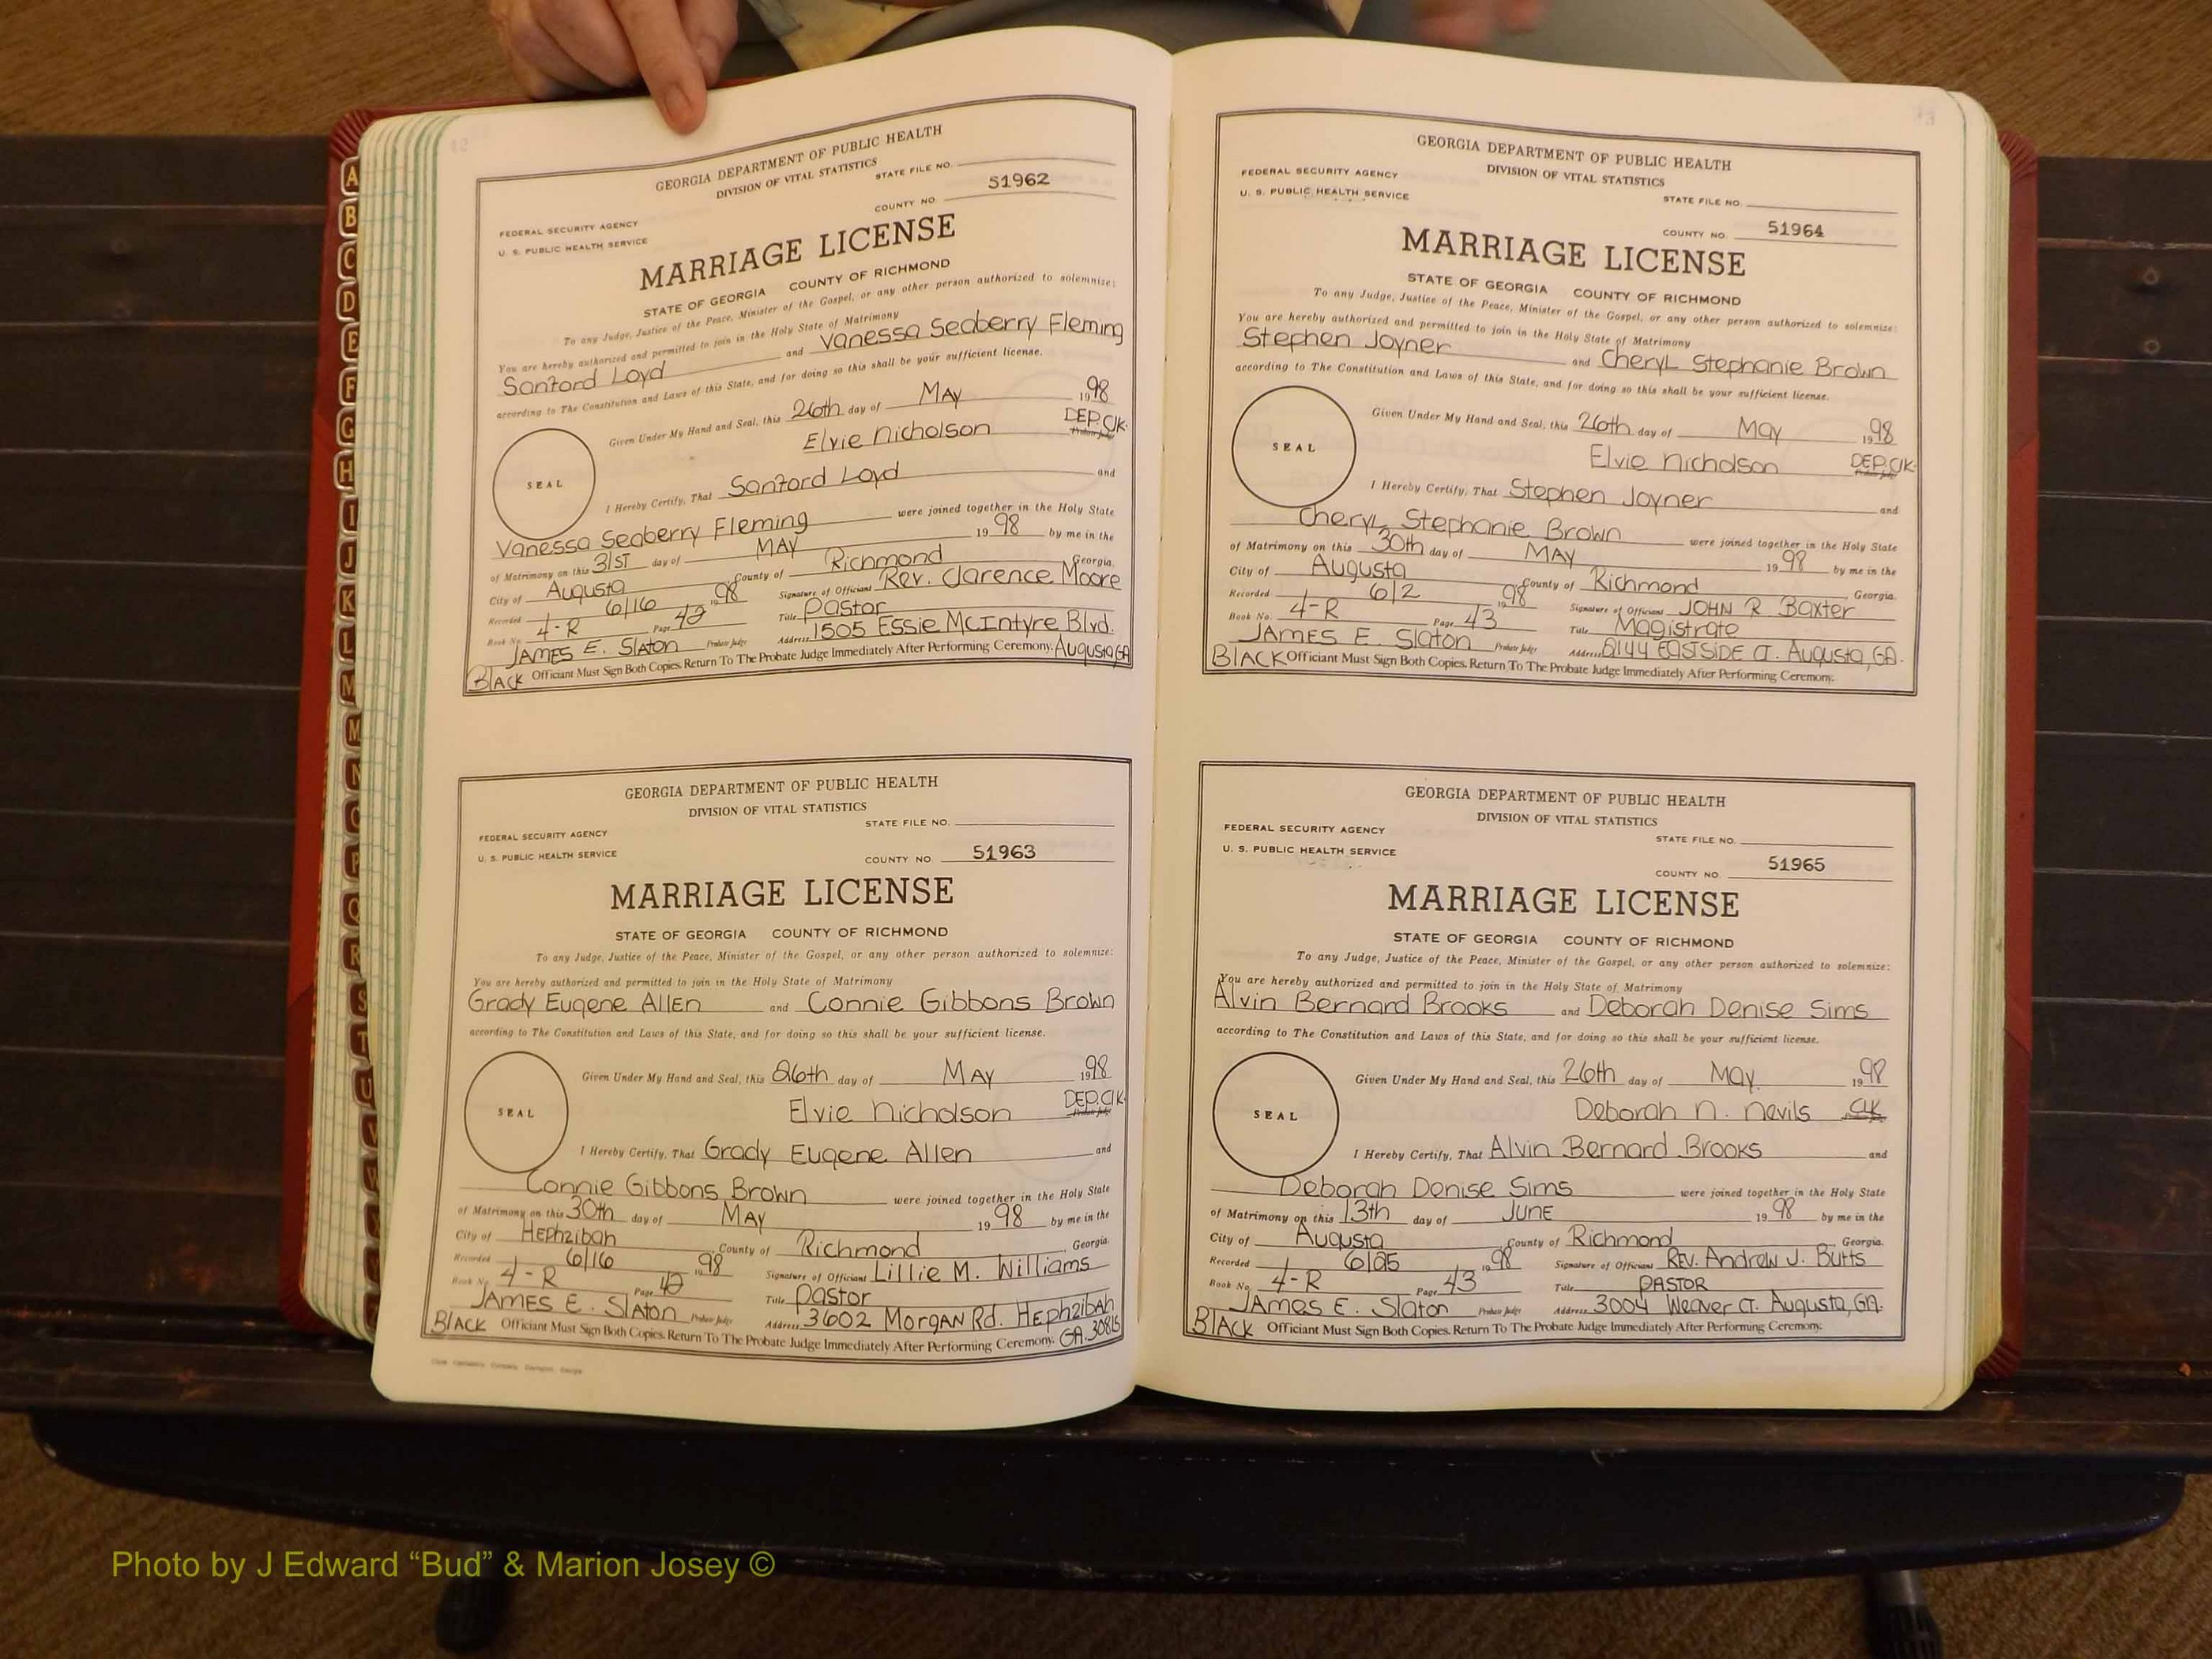 GEORGIA DEPARTMENT OF PUBLIC HEALTH
DIVISION OF VITAL STATISTICS
STATE FILE NO.
FEDERAL SECURITY AGENCY
U. S. PUBLIC HEALTH SERVICE
COUNTY NO. 51962
MARRIAGE LICENSE
STATE OF GEORGIA COUNTY OF RICHMOND
To any Judge, Justice of the Peace, Minister of the Gospel, or any other person authorized to solemnize:
You are hereby authorized and permitted to join in the Holy State of Matrimony
Sanford Loyd and Vanessa Seaberry Fleming
according to The Constitution and Laws of this State, and for doing so this shall be your sufficient license.
Given Under My Hand and Seal, this 26th day of MAY 1998
Elvie Nicholson DEP. Clk. Probate Judge
SEAL
I Hereby Certify, That Sanford Loyd and
Vanessa Seaberry Fleming were joined together in the Holy State
of Matrimony on this 31ST day of MAY 1998 by me in the
City of Augusta County of Richmond Georgia.
Recorded 6/16 1998 Signature of Officiant Rev. Clarence Moore
Book No. 4-R Page 42 Title Pastor
JAMES E. Slaton Probate Judge Address 1505 Essie McIntyre Blvd.
Augusta, GA
BLACK Officiant Must Sign Both Copies. Return To The Probate Judge Immediately After Performing Ceremony.
GEORGIA DEPARTMENT OF PUBLIC HEALTH
DIVISION OF VITAL STATISTICS
STATE FILE NO.
FEDERAL SECURITY AGENCY
U. S. PUBLIC HEALTH SERVICE
COUNTY NO. 51963
MARRIAGE LICENSE
STATE OF GEORGIA COUNTY OF RICHMOND
To any Judge, Justice of the Peace, Minister of the Gospel, or any other person authorized to solemnize:
You are hereby authorized and permitted to join in the Holy State of Matrimony
Grady Eugene Allen and Connie Gibbons Brown
according to The Constitution and Laws of this State, and for doing so this shall be your sufficient license.
Given Under My Hand and Seal, this 26th day of MAY 1998
Elvie Nicholson DEP. Clk. Probate Judge
SEAL
I Hereby Certify, That Grady Eugene Allen and
Connie Gibbons Brown were joined together in the Holy State
of Matrimony on this 30th day of MAY 1998 by me in the
City of Hephzibah County of Richmond, Georgia.
Recorded 6/16 1998 Signature of Officiant Lillie M. Williams
Book No. 4-R Page 42 Title Pastor
JAMES E. Slaton Probate Judge Address 3602 Morgan Rd. Hephzibah
GA. 30815
BLACK Officiant Must Sign Both Copies. Return To The Probate Judge Immediately After Performing Ceremony.
GEORGIA DEPARTMENT OF PUBLIC HEALTH
DIVISION OF VITAL STATISTICS
FEDERAL SECURITY AGENCY
U. S. PUBLIC HEALTH SERVICE
STATE FILE NO.
COUNTY NO. 51964
MARRIAGE LICENSE
STATE OF GEORGIA COUNTY OF RICHMOND
To any Judge, Justice of the Peace, Minister of the Gospel, or any other person authorized to solemnize:
You are hereby authorized and permitted to join in the Holy State of Matrimony
Stephen Joyner and Cheryl Stephanie Brown
according to The Constitution and Laws of this State, and for doing so this shall be your sufficient license.
Given Under My Hand and Seal, this 26th day of May 1998
Elvie Nicholson DEP. Clk. Probate Judge
SEAL
I Hereby Certify, That Stephen Joyner and
Cheryl Stephanie Brown were joined together in the Holy State
of Matrimony on this 30th day of MAY 1998 by me in the
City of Augusta County of Richmond Georgia.
Recorded 6/2 1998 Signature of Officiant JOHN R. Baxter
Book No. 4-R Page 43 Title Magistrate
JAMES E. Slaton Probate Judge Address 2144 EASTSIDE CT. Augusta, GA.
BLACK Officiant Must Sign Both Copies. Return To The Probate Judge Immediately After Performing Ceremony.
GEORGIA DEPARTMENT OF PUBLIC HEALTH
DIVISION OF VITAL STATISTICS
FEDERAL SECURITY AGENCY
U. S. PUBLIC HEALTH SERVICE
STATE FILE NO.
COUNTY NO. 51965
MARRIAGE LICENSE
STATE OF GEORGIA COUNTY OF RICHMOND
To any Judge, Justice of the Peace, Minister of the Gospel, or any other person authorized to solemnize:
You are hereby authorized and permitted to join in the Holy State of Matrimony
Alvin Bernard Brooks and Deborah Denise Sims
according to The Constitution and Laws of this State, and for doing so this shall be your sufficient license.
Given Under My Hand and Seal, this 26th day of May 1998
Deborah N. Nevils Clk
SEAL
I Hereby Certify, That Alvin Bernard Brooks and
Deborah Denise Sims were joined together in the Holy State
of Matrimony on this 13th day of JUNE 1998 by me in the
City of Augusta County of Richmond Georgia.
Recorded 6/25 1998 Signature of Officiant REV. Andrew J. Butts
Book No. 4-R Page 43 Title PASTOR
JAMES E. Slaton Probate Judge Address 3004 Weaver CT. Augusta, GA.
BLACK Officiant Must Sign Both Copies. Return To The Probate Judge Immediately After Performing Ceremony.
A
B
C
D
E
F
G
H
I
J
K
L
M
M
N
O
P
Q
R
S
T
U
V
W
Photo by J Edward “Bud” & Marion Josey ©